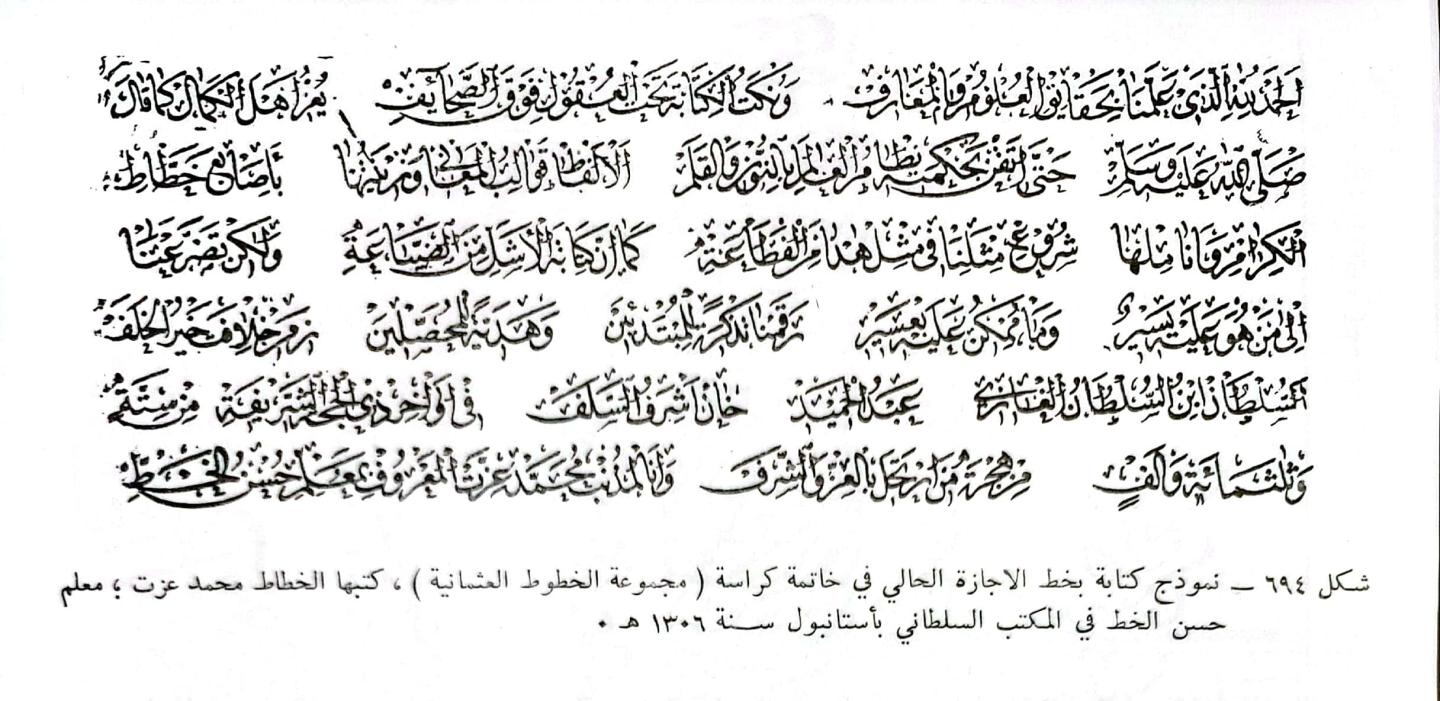 الحمد لله الذي علمنا بحقايق العلوم والمعارف ونكت الكتابة تحت العقول فوق الصحايف يعز اهل الكمال كما قال
صلى الله عليه وسلم حتى اتقن بحكمته نظام العالم بالنون والقلم الالفاظ قوالب المعاني وتزيينها بأصابع خطاط
الكرام وانا مثلها شروع مثلنا في مثل هذا من الفظاعة كما ان كتابة الاشل من الضياعة ولكن تضرعنا
الى من هو عليه يسير وما يمكن عليه تعسير رقمنا تذكرة للمبتدئين وهدية للمحصلين زمن خلافة خير الخلف
السلطان ابن السلطان الغازي عبد الحميد خان اشرف السلف في اواخر ذي الحجة الشريفة من ستة
وثلثمائة والف من هجرة من ارتحل بالعز والشرف وانا المذنب محمد عزت المعروف بمعلم حسن الخط
شكل ٦٩٤ ــ نموذج كتابة بخط الاجازة الحالي في خاتمة كراسة ( مجموعة الخطوط العثمانية ) ، كتبها الخطاط محمد عزت ؛ معلم
حسن الخط في المكتب السلطاني بأستانبول سنة ١٣٠٦ هـ ٠